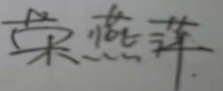 荣燕萍